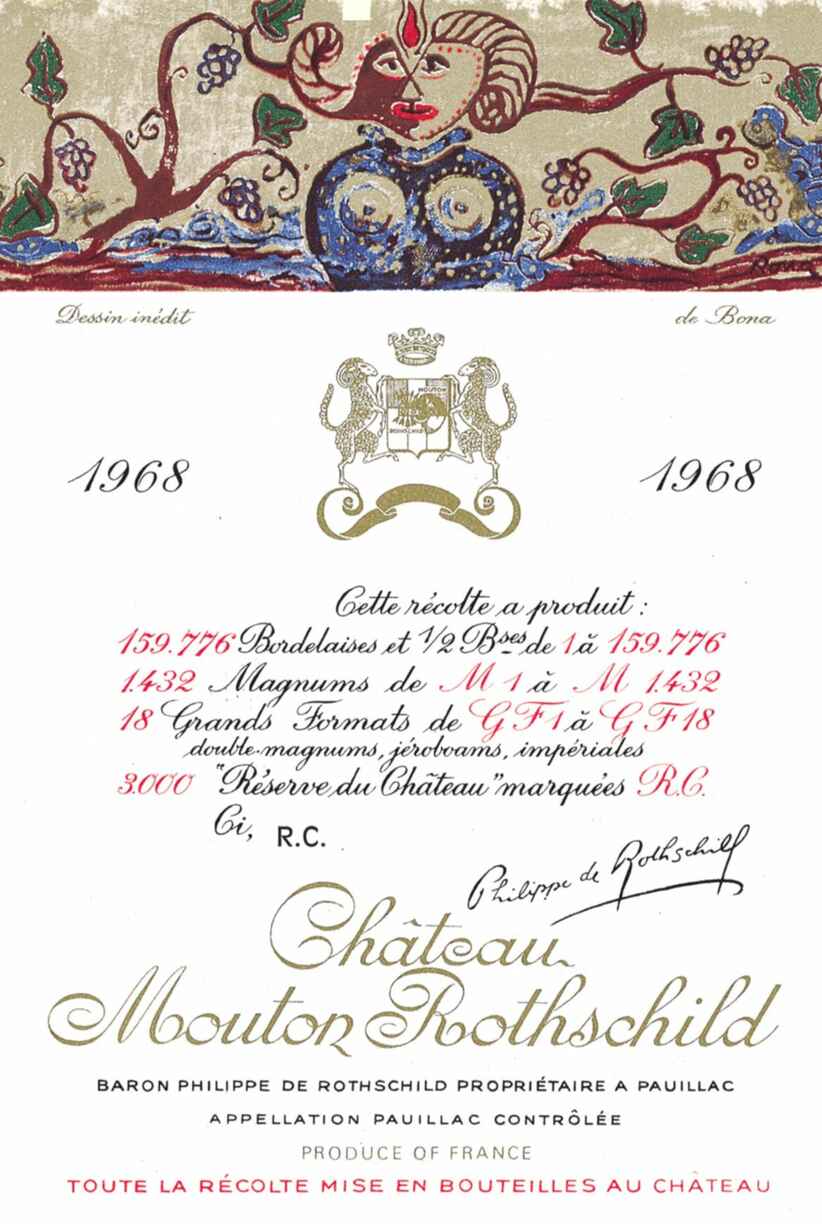 Dessin inédit de Bona
MOUTON
ROTHSCHILD
1968 1968
Cette récolte a produit :
159.776 Bordelaises et 1/2 Bses de 1 à 159.776
1.432 Magnums de M 1 à M 1.432
18 Grands Formats de G F 1 à G F 18
double-magnums, jéroboams, impériales
3.000 "Réserve du Château" marquées R.C.
Ci, R.C.
Philippe de Rothschild
Château
Mouton Rothschild
BARON PHILIPPE DE ROTHSCHILD PROPRIÉTAIRE A PAUILLAC
APPELLATION PAUILLAC CONTRÔLÉE
PRODUCE OF FRANCE
TOUTE LA RÉCOLTE MISE EN BOUTEILLES AU CHÂTEAU